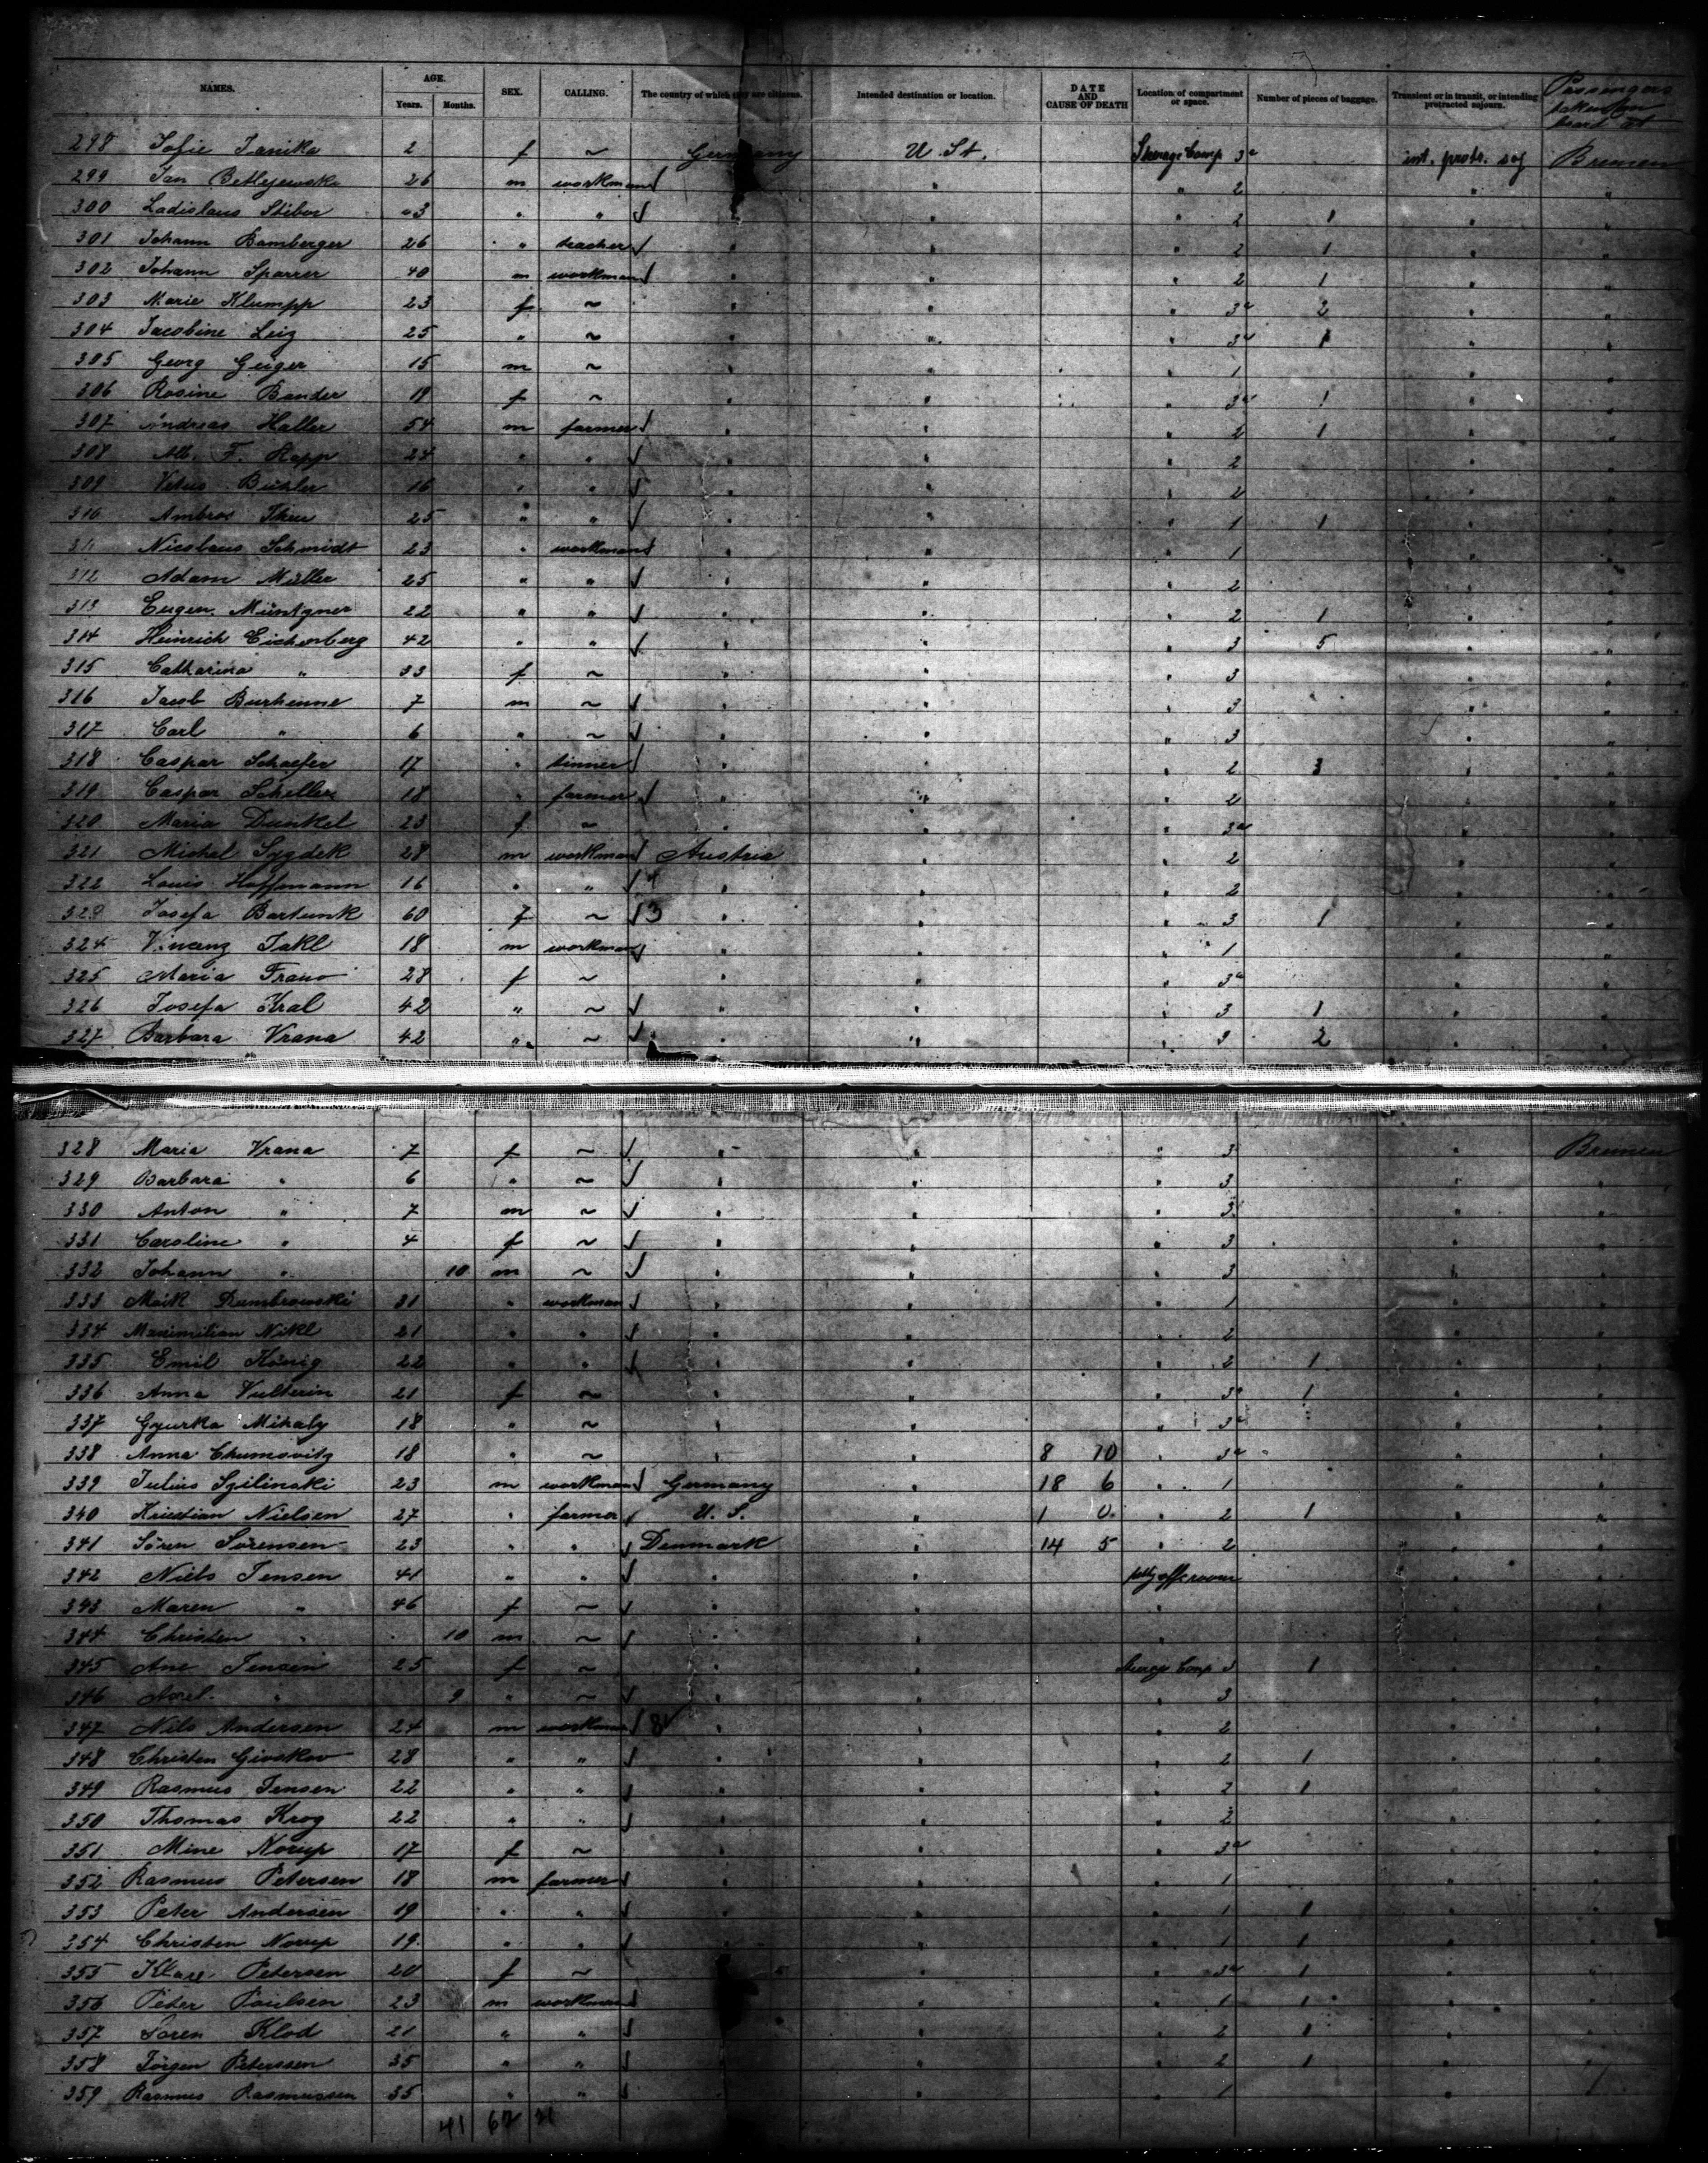 Passengers taken on board at
NAMES. AGE. Years. Months. SEX. CALLING. The country of which they are citizens. Intended destination or location. DATE AND CAUSE OF DEATH Location of compartment or space. Number of pieces of baggage. Transient or in transit, or intending protracted sojourn.
298 Sofie Janika 2 f ~ Germany U. St. Steerage Comp 3a int. protr. soj Bremen
299 Jan Betlejewski 26 m workman " " " 2 " "
300 Ladislaus Stibor 23 " " " " " 2 1 " "
301 Johann Bamberger 26 " teacher " " " 2 1 " "
302 Johann Sparrer 40 m workman " " " 2 1 " "
303 Marie Klumpp 23 f ~ " " " 3a 2 " "
304 Jacobine Leiz 25 " ~ " " " 3a 1 " "
305 Georg Geiger 15 m ~ " " " 1 " "
306 Rosine Bander 19 f ~ " " " 3a 1 " "
307 Andreas Haller 54 m farmer " " " 2 1 " "
308 Alb. F. Rapp 24 " " " " " 2 " "
309 Vetus Bühler 16 " " " " " 2 " "
310 Ambros 25 " " " " " 1 1 " "
311 Nicolaus Schmidt 23 " workman " " " 1 " "
312 Adam Müller 25 " " " " " 2 " "
313 Eugen Müntzner 22 " " " " " 2 1 " "
314 Heinrich Eichenberg 42 " " " " " 3 5 " "
315 Catharina " 33 f ~ " " " 3 " "
316 Jacob Burhenne 7 m ~ " " " 3 " "
317 Carl " 6 " ~ " " " 3 " "
318 Caspar Schaefer 17 " tinner " " " 2 3 " "
319 Caspar Scheller 18 " farmer " " " 2 " "
320 Maria Dunkel 23 f ~ " " " 3a " "
321 Michal Sygdek 28 m workman Austria " " 2 " "
322 Louis Hoffmann 16 " " " " " 2 " "
323 Josefa Bartunk 60 f ~ 3 " " " 3 1 " "
324 Vincenz Jakl 18 m workman " " " 1 " "
325 Maria Frano 28 f ~ " " " 3a " "
326 Josefa Kral 42 " ~ " " " 3 1 " "
327 Barbara Vrana 42 " ~ " " " 3 2 " "
328 Maria Vrana 7 f ~ " " " 3 " Bremen
329 Barbara " 6 " ~ " " " 3 " "
330 Anton " 7 m ~ " " " 3 " "
331 Caroline " 4 f ~ " " " 3 " "
332 Johann " 10 m ~ " " " 3 " "
333 Maik Dumbrowski 31 " workman " " " 1 " "
334 Maximilian Nikl 21 " " " " " 2 " "
335 Emil König 22 " " " " " 2 1 " "
336 Anna Vulterin 21 f ~ " " " 3a 1 " "
337 Gyurka Mihaly 18 " ~ " " " 3a " "
338 Anna Chumovitz 18 " ~ " " 8 10 " 3a " "
339 Julius Szilinski 23 m workman Germany " 18 6 " 1 " "
340 Kristian Nielsen 27 " farmer U. S. " 1 0 " 2 1 " "
341 Sören Sörensen 23 " " Denmark " 14 5 " 2 " "
342 Niels Jensen 41 " " " " petty offc room " "
343 Maren " 46 f ~ " " " " "
344 Christen " 10 m ~ " " " " "
345 Ane Jensen 25 f ~ " " Steerage Comp 3 1 " "
346 Axel " 9 " ~ " " " 3 " "
347 Nils Andersen 24 m workman " " " 2 " "
348 Christen Givskov 28 " " " " " 2 1 " "
349 Rasmus Jensen 22 " " " " " 2 1 " "
350 Thomas Krog 22 " " " " " 2 " "
351 Mine Norup 17 f ~ " " " 3a " "
352 Rasmus Petersen 18 m farmer " " " 1 " "
353 Peter Andersen 19 " " " " " 1 1 " "
354 Christen Norup 19 " " " " " 1 1 " "
355 Petersen 20 f ~ " " " 3a 1 " "
356 Peter Poulsen 23 m workman " " " 1 1 " "
357 Soren Klod 21 " " " " " 2 1 " "
358 Jörgen Peterssen 35 " " " " " 2 1 " "
359 Rasmus Rasmussen 35 " " " " " 1 "
41 67 21